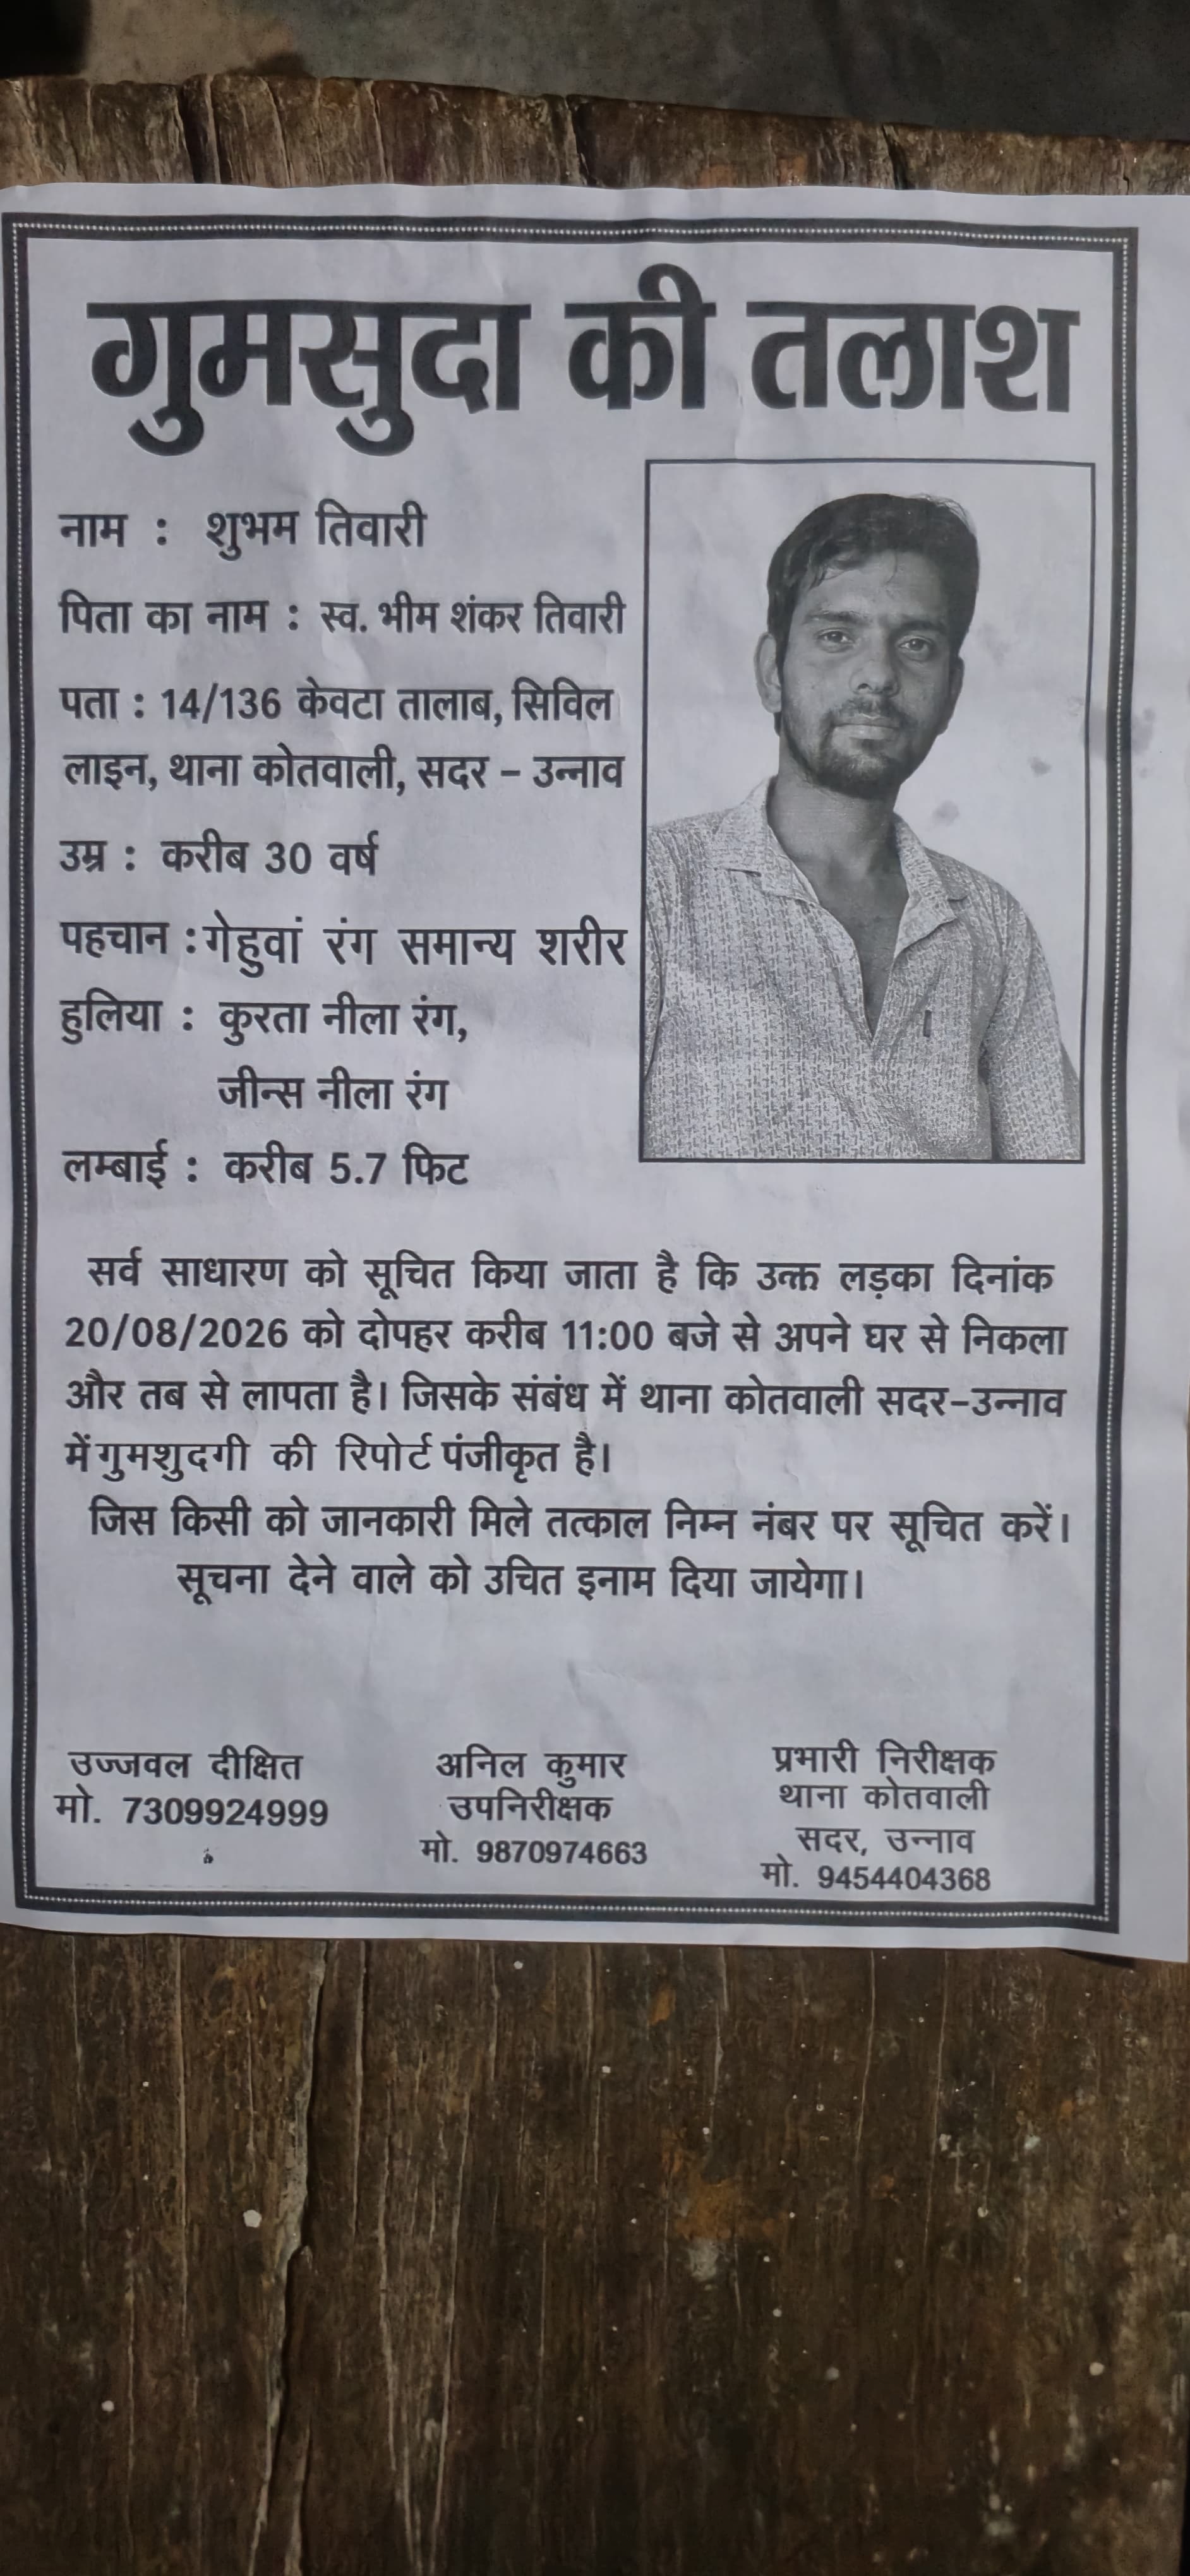 गुमसुदा की तलाश
नाम : शुभम तिवारी
पिता का नाम : स्व. भीम शंकर तिवारी
पता : 14/136 केवटा तालाब, सिविल
लाइन, थाना कोतवाली, सदर – उन्नाव
उम्र : करीब 30 वर्ष
पहचान : गेहुवां रंग समान्य शरीर
हुलिया : कुरता नीला रंग,
जीन्स नीला रंग
लम्बाई : करीब 5.7 फिट
सर्व साधारण को सूचित किया जाता है कि उक्त लड़का दिनांक
20/08/2026 को दोपहर करीब 11:00 बजे से अपने घर से निकला
और तब से लापता है। जिसके संबंध में थाना कोतवाली सदर-उन्नाव
में गुमशुदगी की रिपोर्ट पंजीकृत है।
जिस किसी को जानकारी मिले तत्काल निम्न नंबर पर सूचित करें।
सूचना देने वाले को उचित इनाम दिया जायेगा।
उज्जवल दीक्षित
मो. 7309924999
अनिल कुमार
उपनिरीक्षक
मो. 9870974663
प्रभारी निरीक्षक
थाना कोतवाली
सदर, उन्नाव
मो. 9454404368